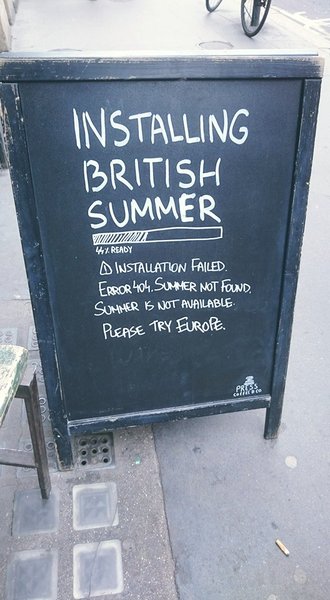 INSTALLING
BRITISH
SUMMER
44% READY
⚠ INSTALLATION FAILED.
ERROR 404. SUMMER NOT FOUND.
SUMMER IS NOT AVAILABLE.
PLEASE TRY EUROPE.
PRESS
COFFEE & CO